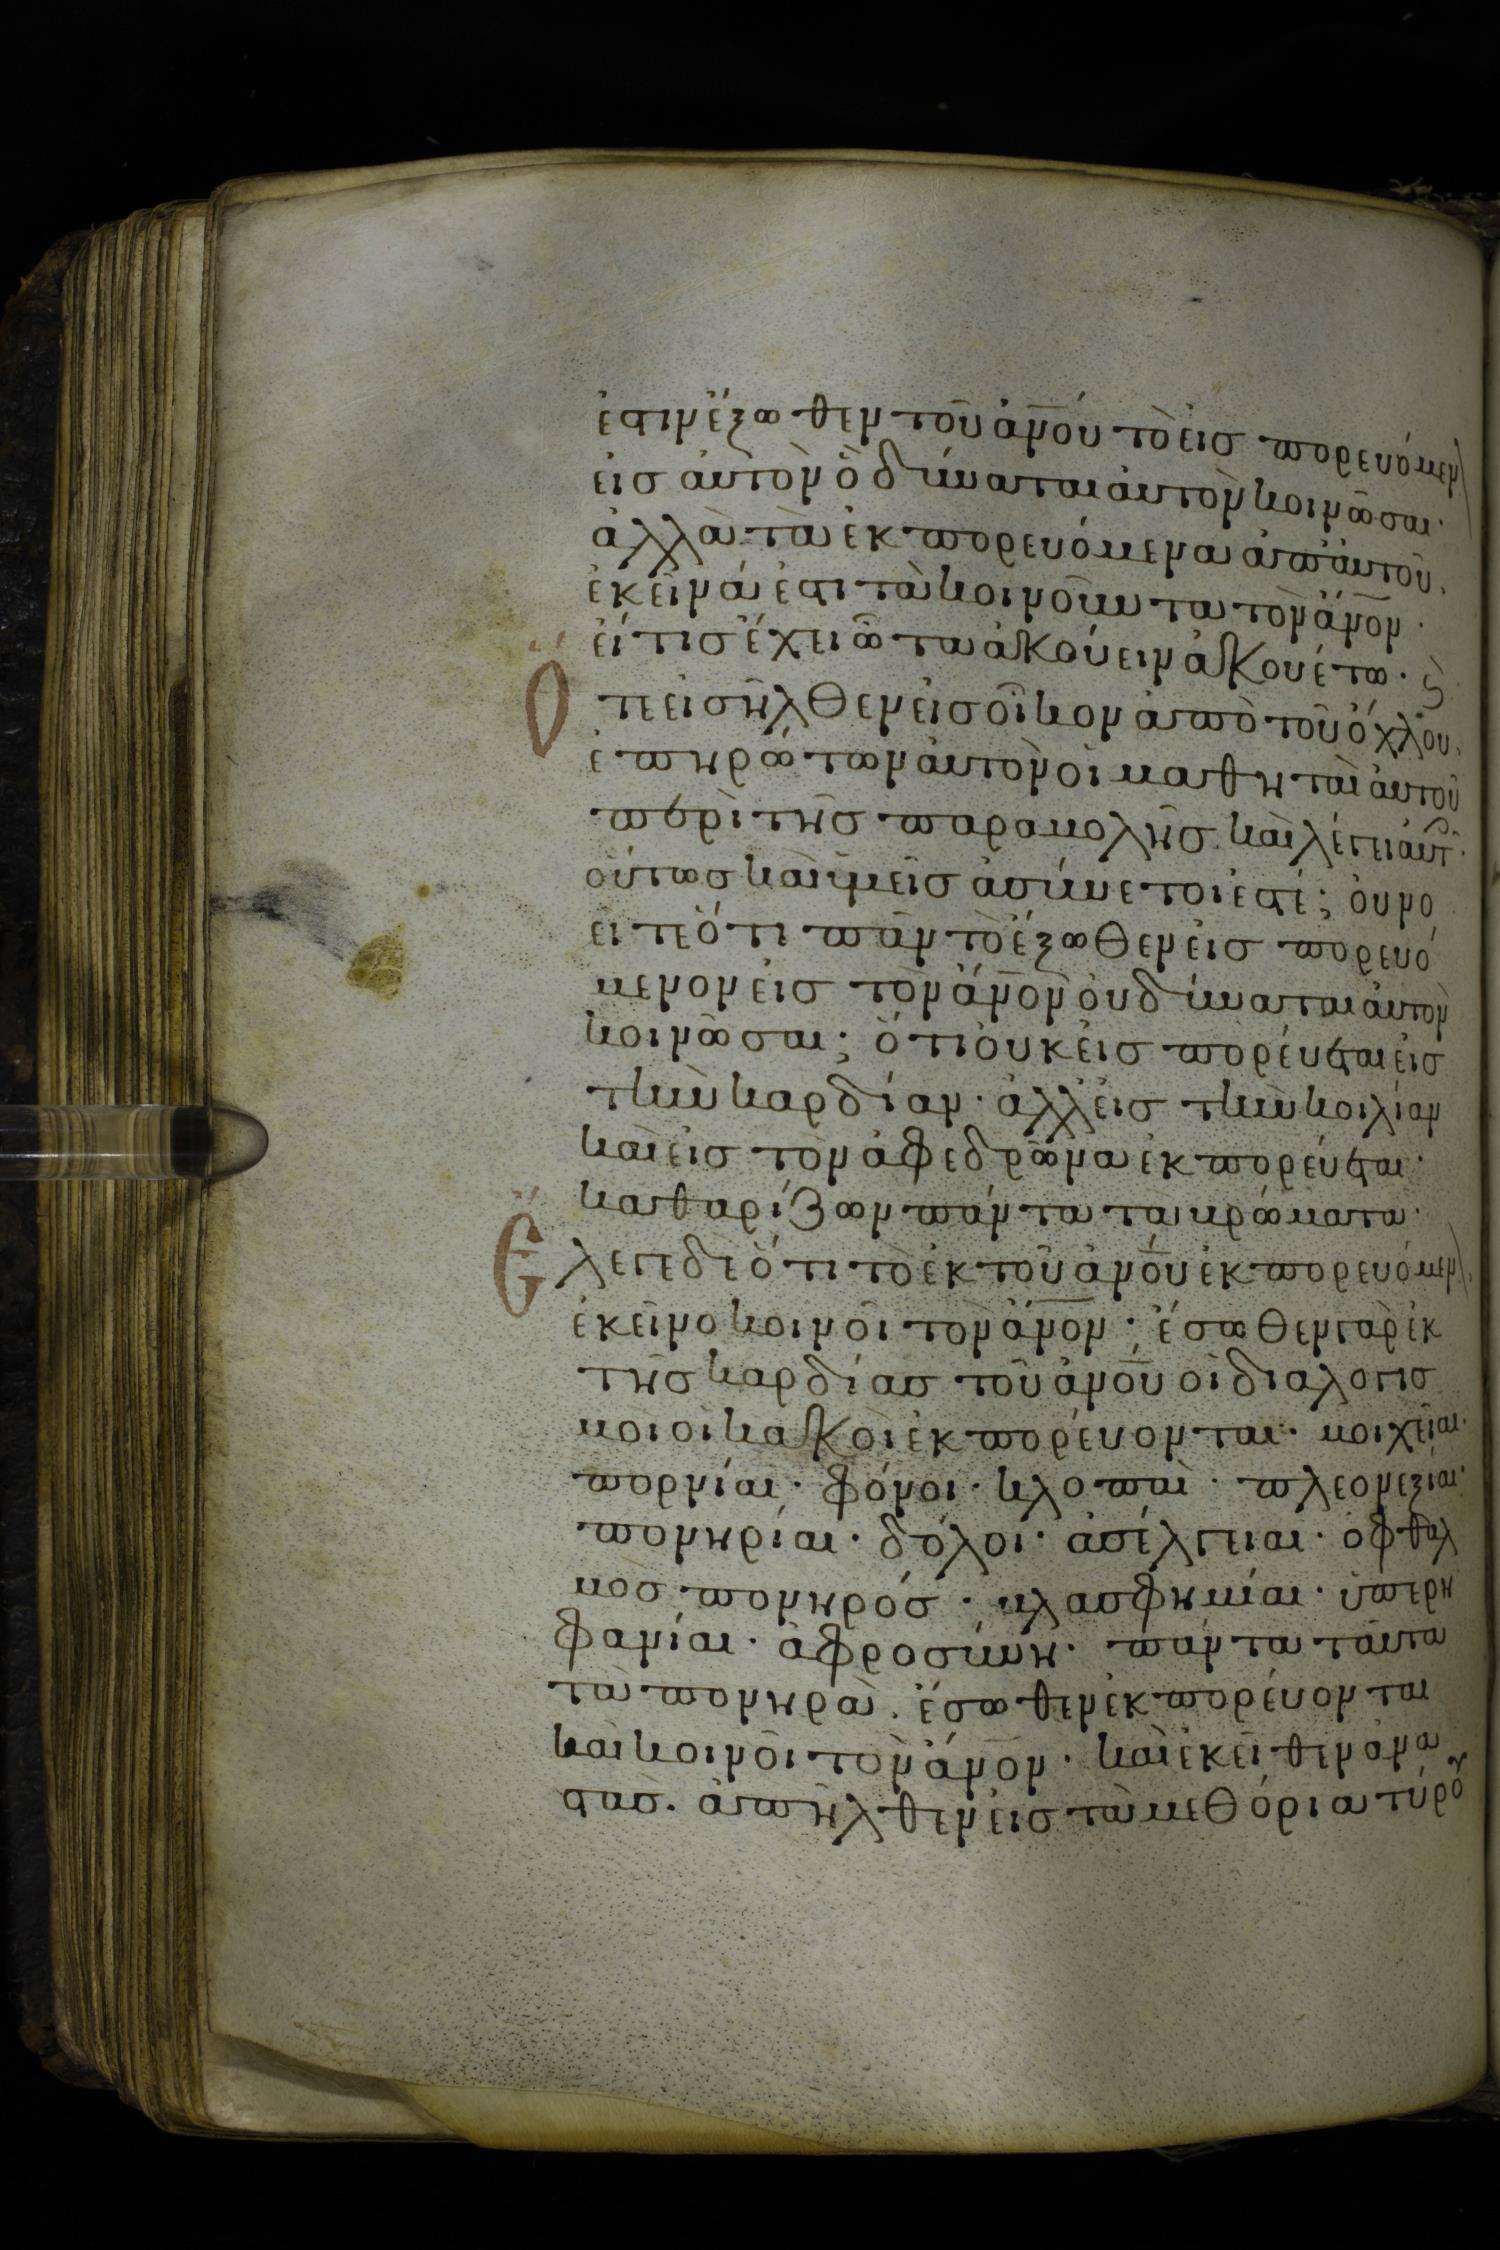 ἐστιν ἔξωθεν τοῦ ἀν̅ου̅ το εἰσπορευόμεν
εἰς αὐτὸν ὃ δύναται αὐτὸν κοινῶσαι·
ἀλλὰ τὰ ἐκπορευόμενα ἀπ' αὐτοῦ
ἐκεῖνά ἐστι τὰ κοινοῦντα τὸν ἄν̅ον̅·
εἴ τις ἔχει ὦτα ἀκούειν ἀκουέτω· ὃ
Ὅτε εἰσῆλθεν εἰς οἶκον ἀπὸ τοῦ ὄχλου·
ἐπηρώτων αὐτὸν οἱ μαθηταὶ αὐτοῦ
περὶ τῆς παραβολῆς· καὶ λέγει αὐτ·
οὕτως καὶ ὑμεῖς ἀσύνετοι ἐστέ; οὐ νο
εῖτε ὅτι πᾶν τὸ ἔξωθεν εἰσπορευό
μενον εἰς τὸν ἄν̅ον̅ οὐ δύναται αὐτὸν
κοινῶσαι; ὅτι οὐκ εἰσπορέυεται εἰς
τὴν καρδίαν· ἀλλ' εἰς τὴν κοιλίαν
καὶ εἰς τὸν ἀφεδρῶνα ἐκπορεύεται·
καθαρίζων πάντα τὰ βρώματα·
Ἔλεγε δὲ ὅτι τὸ ἐκ τοῦ ἀν̅ου̅ ἐκπορευόμεν
ἐκεῖνο κοινοῖ τὸν ἄν̅ον̅· ἔσωθεν γὰρ ἐκ
τῆς καρδίας τοῦ ἀν̅ου̅ οἱ διαλογισ
μοὶ οἱ κακοὶ ἐκπορέυονται· μοιχεῖαι·
πορνίαι· φόνοι· κλοπαὶ· πλεονεξιαι·
πονηρίαι· δόλοι· ἀσέλγειαι· ὀφθαλ
μὸς πονηρός· βλασφημίαι· ὑπερη
φανίαι· ἀφροσύνη· πάντα ταῦτα
τὰ πονηρὰ· ἔσωθεν ἐκπορέυονται
καὶ κοινοῖ τὸν ἄν̅ον̅· καὶ ἐκεῖθεν ἀνα
στὰς· ἀπῆλθεν εἰς τὰ μεθόρια τύρου